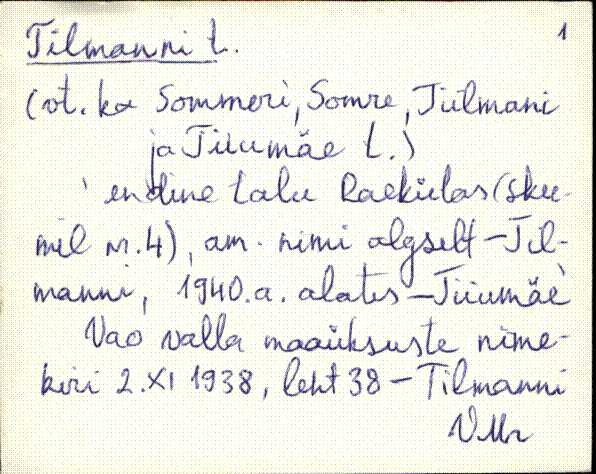 Tilmanni t. 1
(vt. ka Sommeri, Somre, Tülmani
ja Tiiumäe t.)
endine talu Raekülas (skee-
mil nr. 4), am. nimi algselt – Til-
manni, 1940.a. alates – Tiiumäe
Vao valla maaüksuste nime-
kiri 2.XI 1938, leht 38 – Tilmanni